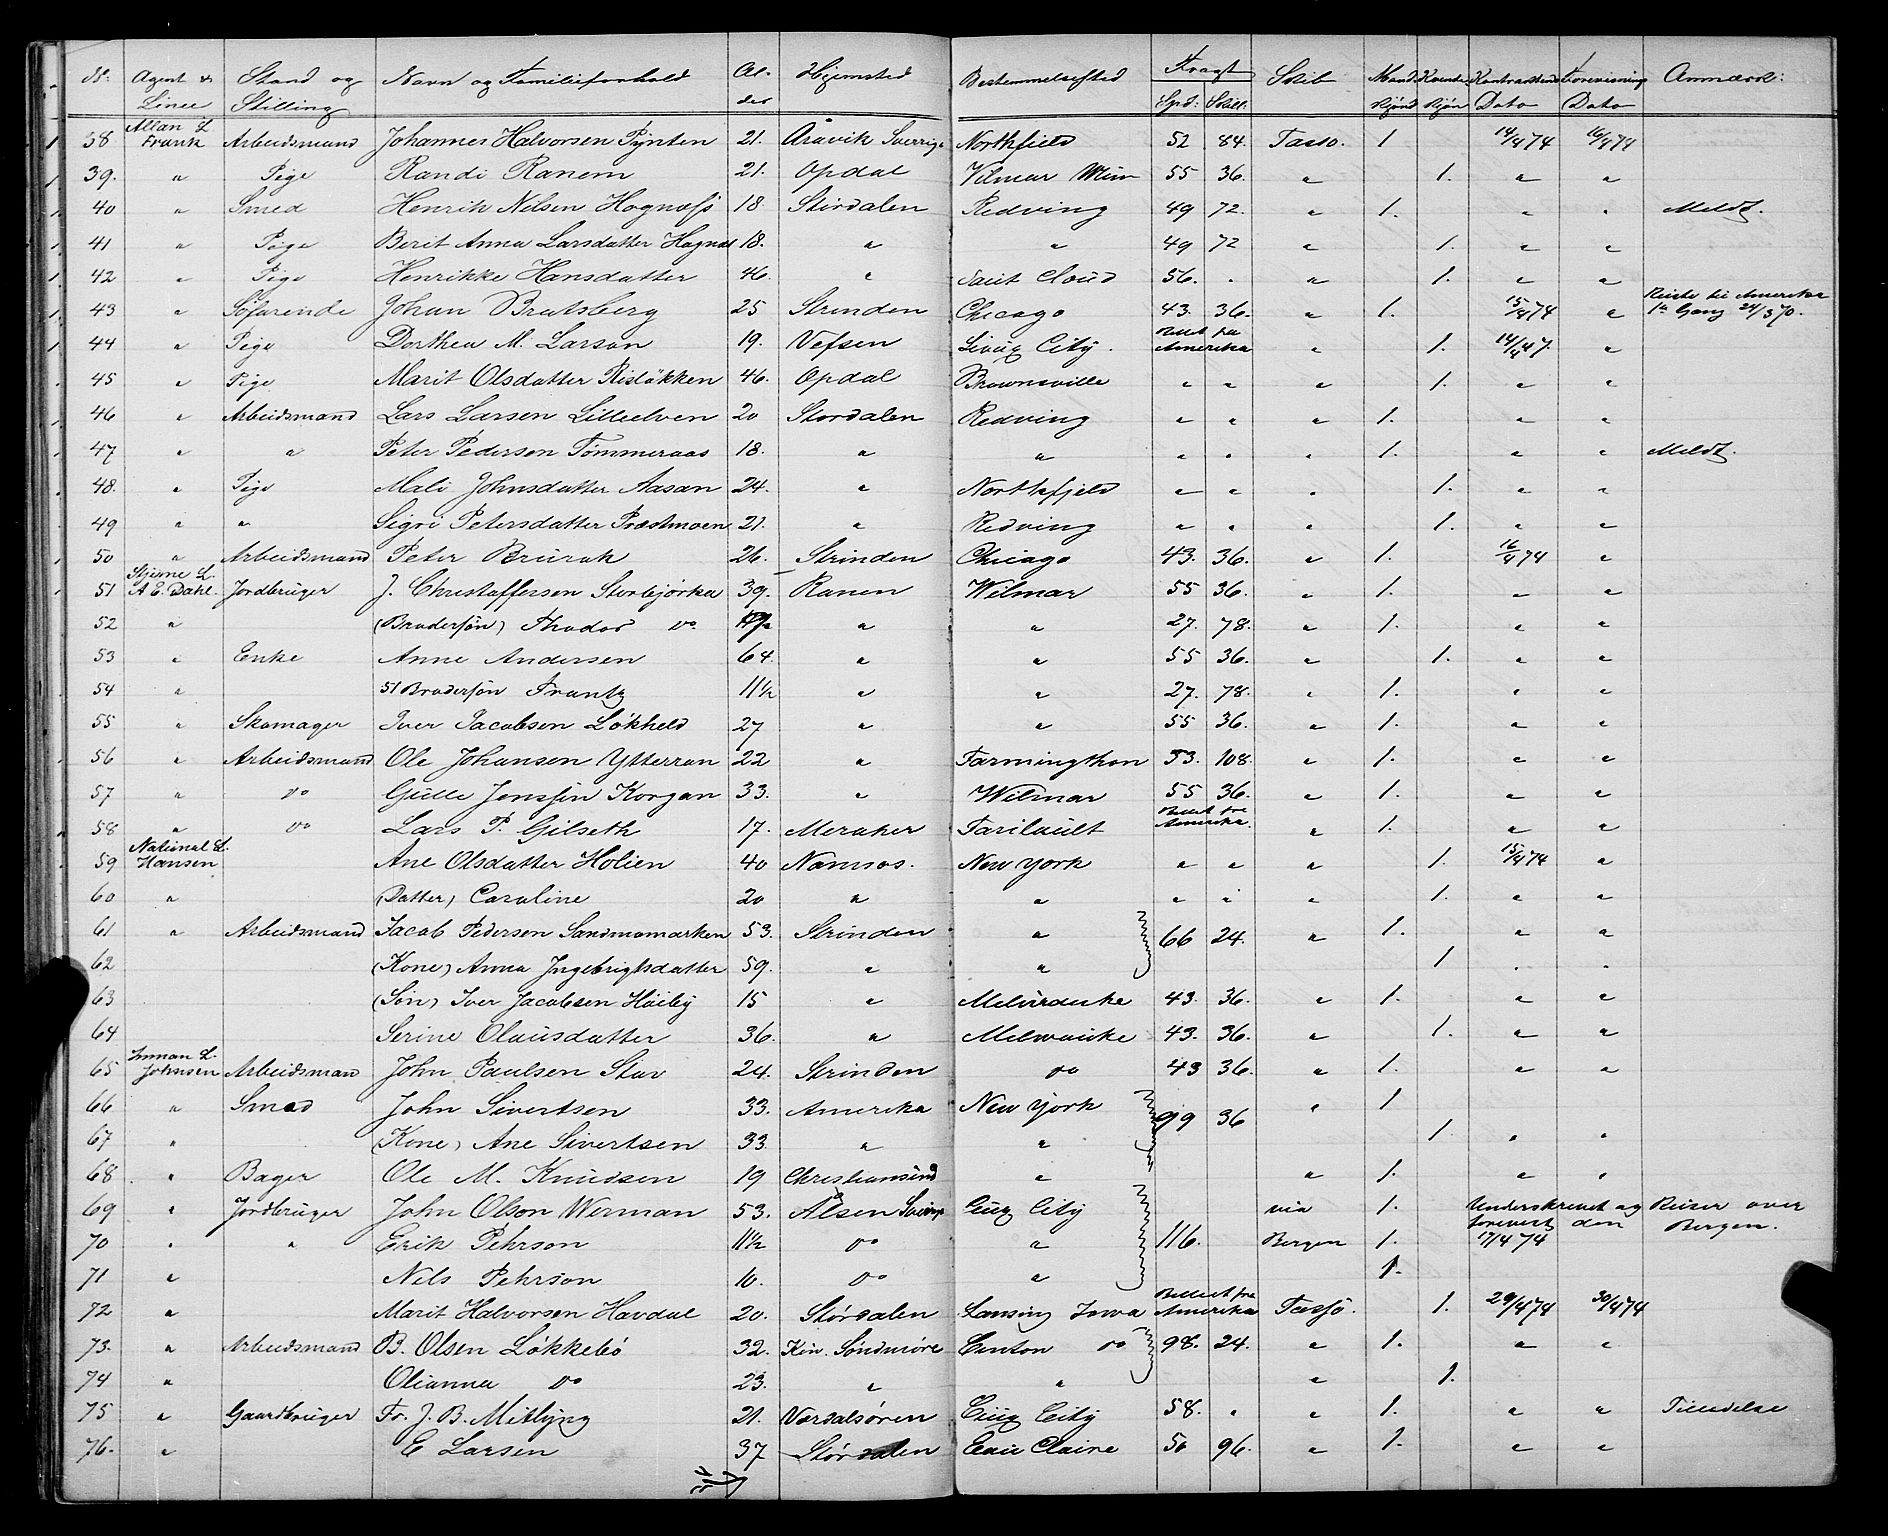 № Agent & Linie Stand og Stilling Navn og Familieforhold Alder Hjemsted Bestemmelsessted Fragt Spd: Skill: Skib Mandkjøn Kvindekjøn Kontraktens Dato Forevisning Dato Anmærk:
38 Allan L Frank Arbeidsmand Johannes Halvorsen Pynten 21. Aravik Sverrige Northfield 52 84. Tasso. 1 14/4 74 16/4 74
39. " Pige Randi Ranem 21. Opdal Vilmar Min 55 36. " 1. " "
40 " Smed Henrik Nilsen Hognæss 18. Stirdalen Redving 49 72. " 1. " " Meldt.
41 " Pige Berit Anna Larsdatter Hognæs 18. " " 49 72 " 1. " "
42 " Pige Henrikke Hansdatter 46. " Saut Cloud 56. . " 1. " "
43 " Søfarende Johan Bratsberg 25 Strinden Chicago 43. 36. " 1. 15/4 74 " Reiste til Amerika 1ste Gang 24/3 70.
44 " Pige Dorthea M. Larson 19. Vefsen Sioux City. Billet fra Amerika " 1. 14/4 47 "
45 " Pige Marit Olsdatter Risløkken 46. Opdal Brownsville " " " 1. " "
46 " Arbeidsmand Lars Larsen Lilleelven 20 Stordalen Redving " " " 1. " "
47 " " Peter Pedersen Tømmeraas 18. " " " " " 1. " " Meldt.
48. " Pige Mali Johnsdatter Aasan 24. " Northfjeld " " " 1. " "
49 " " Sigri Petersdatter Præstmoen 21. " Redving " " " 1. " "
50 " Arbeidsmand Peter Brurak 26. Strinden Chicago 43. 36. " 1. 16/4 74 "
51 Stjerne L. A E. Dahl. Jordbruger J. Christoffersen Storbjørka 39. Ranen Wilmar 55 36. " 1. " "
52 " (Brodersøn) Thodor do " " 27. 78. " 1. " "
53 " Enke Anne Andersen 64. " " 55 36. " 1. " "
54 " 51 Brodersøn Frantz 11½ " " 27. 78. " 1. " "
55 " Skomager Iver Jacobsen Løkheld 27 " " 55 36. " 1. " "
56 " Arbeidsmand Ole Johansen Ytterran 22 " Farmingthon 53. 108. " 1. " "
57 " do Gulle Jenssøn Korgan 33. " Wilmar 55 36. " 1. " "
58 " do Lars P. Gilseth 17. Meraker Farilault Billet fra Amerika. " 1. " "
59 National L. Hansen Ane Olsdatter Holien 40 Namsos. New York " " " 1. 15/4 74 "
60 " (Datter) Caroline 20 " " " " " 1. " "
61 " Arbeidsmand Jacob Pedersen Sandmomarken 53. Strinden " 66 24. " 1. " "
62 (Kone) Anna Ingebrigtsdatter 59. " " 1 " "
63 (Søn) Iver Jacobsen Høiby 15 " Melvrauke 43. 36. " 1. " "
64 Serine Olausdatter 36. " Melwauke 43. 36. " 1. " "
65 Inman L. Johnsen Arbeidsman John Paulsen Stav 24. Strinden do 43 36. " 1. " "
66 " Smed John Sivertsen 33. Amerika New York 99 36 " 1
67 " (Kone) Ane Sivertsen 33. " " 1. " "
68 " Bager Ole M. Knudsen 19 Christiansund " " 1. " "
69 " Jordbruger John Olson Werman 53. Alsen Sverige Ciux City via 1. Underskrevet og Reiser over
70 " " Erik Pehrson 11½ do " 116. Bergen 1. forevist den 17/4 74 Bergen.
71 " Nils Pehrson 10. do " 1.
72 " Marit Halvorsen Havdal 20. Størdalen Lansing Iowa Billet fra Amerika Tassø. 1. 29/4 74 30/4 74
73. " Arbeidsmand B. Olsen Løkkebø 32. Kin. Søndmøre Canton do 98. 24. " 1. " "
74 " Olianna do 23. " " " 1.
75 " Gaardbruger Fr. J. B. Mitlyng 21. Værdalsøren Ciux City 58. " " 1. " " Tilladelse
76. " E Larsen 37 Størdalen Eau Claire 50 96. " 1. " "